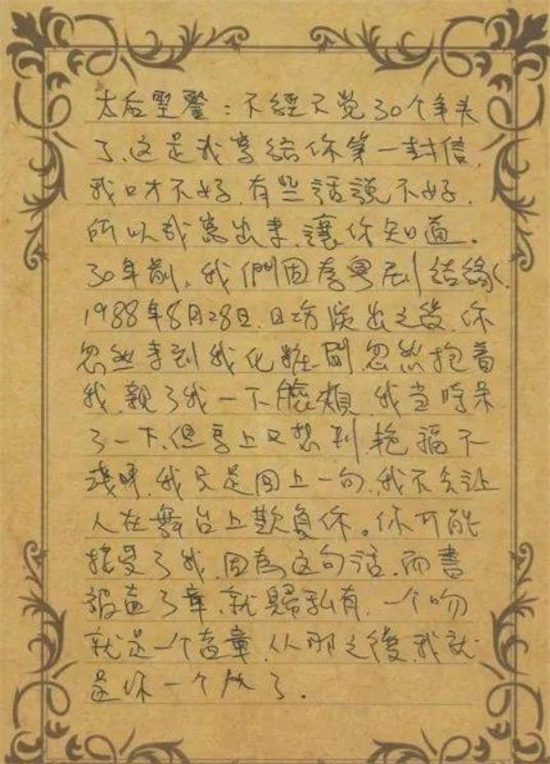 太后聖鑒：不經不覺30个年头
了，这是我寫給你第一封信，
我口才不好，有些話說不好，
所以我寫出来，讓你知道。
30年前，我們因為粵剧結緣，
1988年8月28日，日场演出之後，你
忽然来到我化粧間，忽然抱着
我，親了我一下臉頰，我當時呆
了一下，但馬上又想到艳福不
淺呀，我只是回上一句，我不会让
人在舞台上欺負你。你可能
接受了我，因為这句话，而書
報盖了章，就歸私有，一个吻
就是一个盖章，从那之後，我就
是你一个人了。